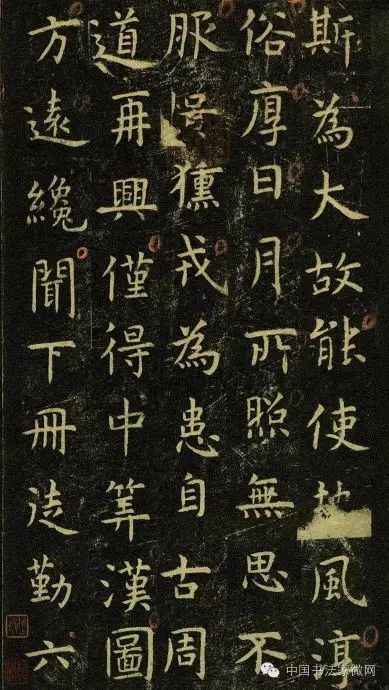 斯為大故能使風淳
俗厚日月所照無思不
服獯戎為患自古周
道再興僅得中筭漢圖
方遠纔聞下冊徒勤六
中国书法家微网